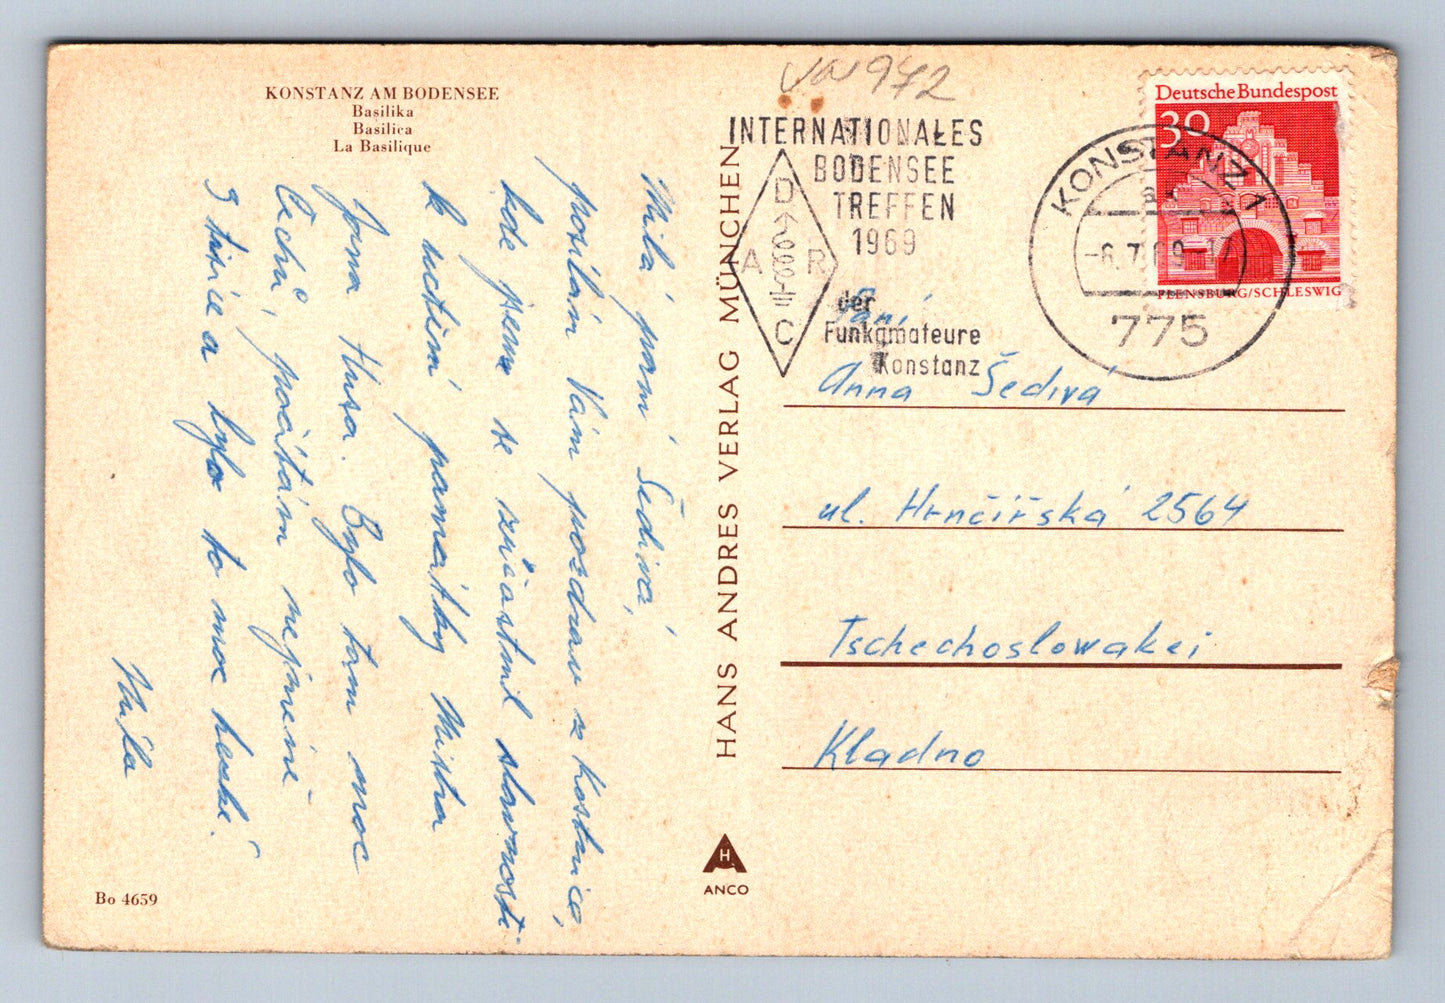 KONSTANZ AM BODENSEE
Basilika
Basilica
La Basilique
Milá paní Šedivá,
posílám Vám pozdrav z Kostnice,
kde jsme se zúčastnil slavnosti
k uctění památky Mistra
Jana Husa. Bylo tam moc
Čechů, počítám nejméně
3 tisíce a bylo to moc hezké.
Míla
Bo 4659
HANS ANDRES VERLAG MÜNCHEN
H
ANCO
INTERNATIONALES
BODENSEE
TREFFEN
1969
der
Funkamateure
Konstanz
D
A R
C
KONSTANZ 1
-6.7.69-17
775
Deutsche Bundespost
30
FLENSBURG/SCHLESWIG
Paní
Anna Šedivá
ul. Hrnčířská 2564
Tschechoslowakei
Kladno